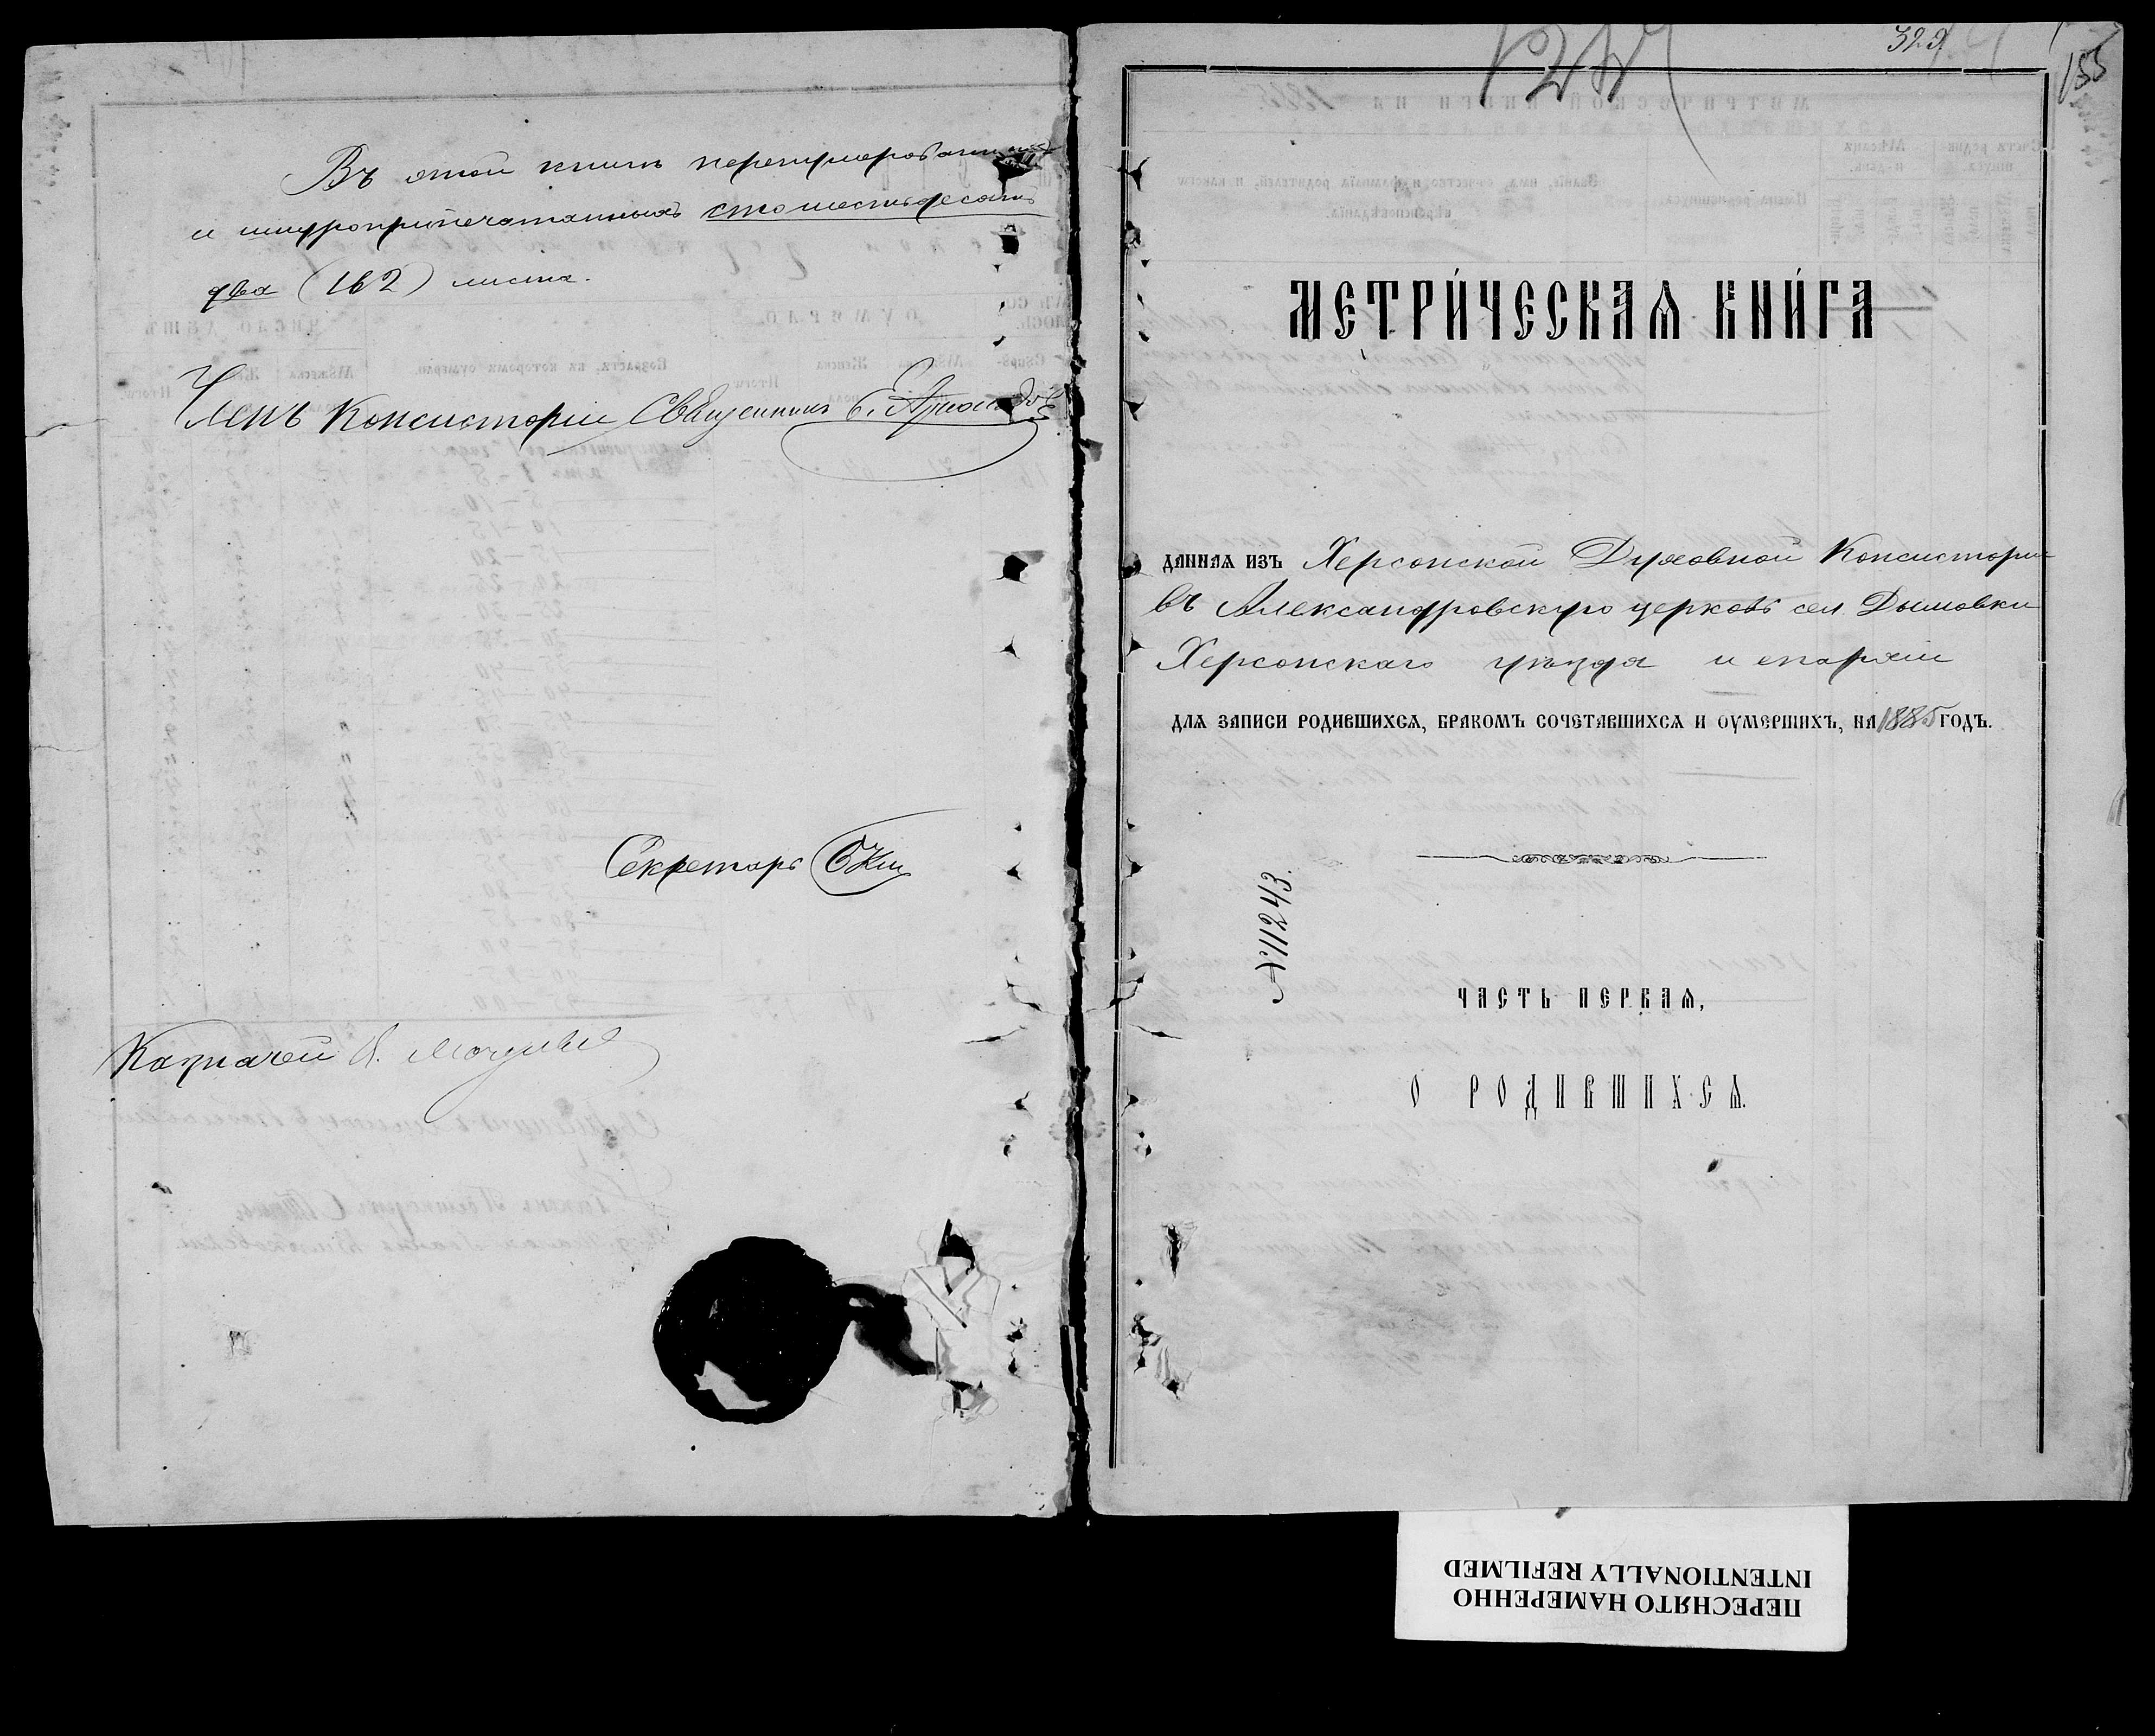 Въ этой книгѣ перенумерованныхъ
и шнуроприпечатанныхъ сто шестьдесятъ
два (162) листа.
Членъ Консисторіи Священникъ
Секретарь
Казначей
329
155
МЕТРИ́ЧЕСКАѦ КНИ́ГА
ДАННАѦ ИЗЪ Херсонской Духовной Консисторіи
въ Александровскую церковь сел. Дымовки
Херсонскаго уѣзда и епархіи
ДЛѦ ЗАПИСИ РОДИВШИХСѦ, БРАКОМЪ СОЧЕТАВШИХСѦ И ОУМЕРШИХЪ, НА 1885 ГОДЪ.
№ 11243.
ЧАСТЬ ПЕРВАѦ,
О РОДИВШИХСѦ.
ПЕРЕСНЯТО НАМЕРЕННО
INTENTIONALLY REFILMED